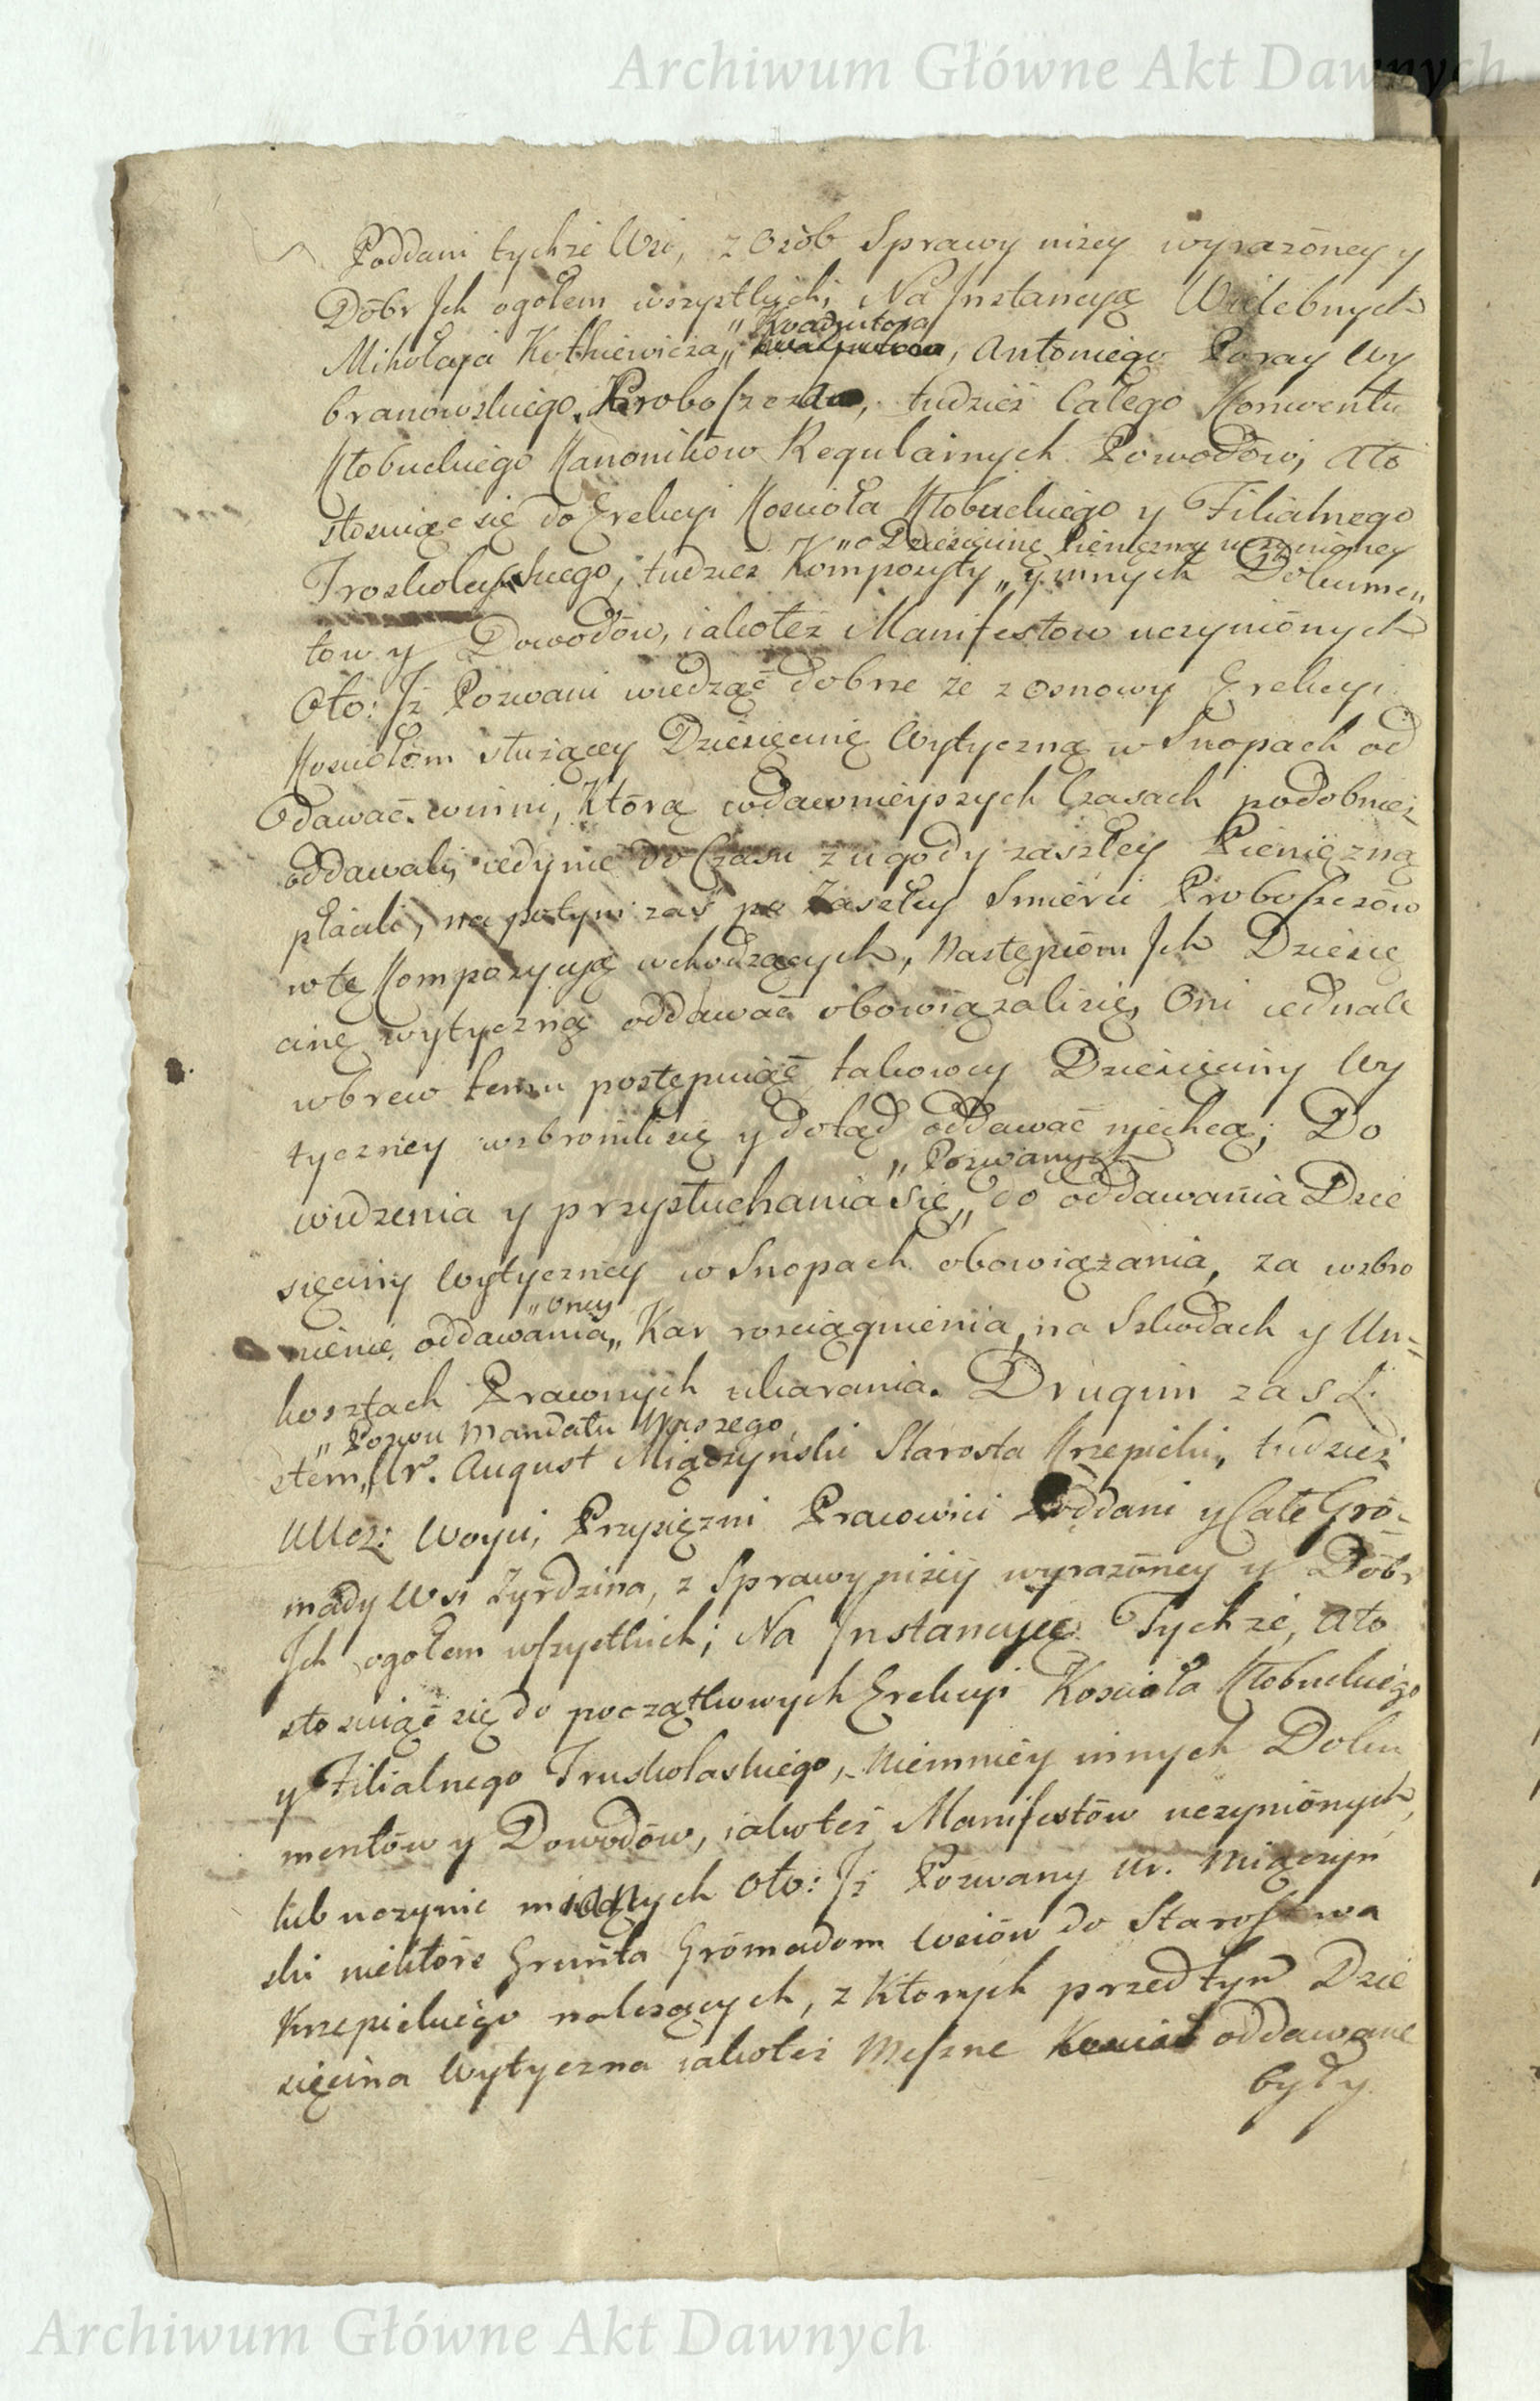 Archiwum Główne Akt Dawnych
Poddani tychże Wsi, z Osób Sprawy niżey wyrażóney y
Dóbr Jch ogołem wszystkich; Na Jnstancyą Wielebnych
„Koadiutora
Mikołaja Kotkiewicza„ , Antoniego Poray Wy
branowskiego, Proboszcza, tudzież Całego Konwentu
Kłobuckiego Kanoników Regularnych Powodów, Ato
stosuiąc się do Erekcyi Koscioła Kłobuckiego y Filialnego
„o Dziesięcinę Pieniężną uczynioney
Truskolaskiego, tudzież Kompozyty„ y innych Dokumen„
tow y Dowodów, iakoteż Manifestow uczyniónych
Oto: Jż Pozwani wiedząc dobrze że z osnowy Erekcyi
Kosciołom służącey Dziesięcinę Wytyczną w Snopach od
dawać winni, Którą w dawnieyszych Czasach podobnież
oddawali, iedynie do Czasu z ugody zaszłey Pieniężną
płacili, na potym zaś po Zaszłey Smierci Proboszczów
w tę Kompozycyą wchodzących, Następcóm Jch Dziesię
cinę wytyczną oddawać obowiązali się, Oni iednak
wbrew temu postępuiąc takowey Dziesięciny Wy
tyczney wzbronili się y dotąd oddawać niechcą; Do
„Pozwanych
widzenia y przysłuchania się„ do oddawania Dzie
sięciny Wytyczney w Snopach obowiązania, za wzbro
„oney
nienie oddawania„ Kar rosciągnienia, na Szkodach y Un=
kosztach Prawnych ukarania. Drugim zaś L.
„Pozwu Mandatu Naszego
stem„ Ur. August Miączyński Starosta Krzepicki, tudzież
UUcz: Woyci, Przysięzni Pracowici Poddani y Całe Gró=
mady Wsi Zyrdzina, z Sprawy niżéy wyrażóney y Dóbr
Jch ogołem wszystkich; Na Jnstancyą Tychże, Ato
stosuiąc się do początkowych Erekcyi Koscioła Kłobuckiego
y Filialnego Truskolaskiego, Niemniéy innych Doku
mentów y Dowodów, iakoteż Manifestów uczyniónych,
lub uczynić maiących Oto: Jż Pozwany Ur. Miączyń
ski niektóre Grunta Grómadom Wsiów do Starostwa
Krzepickiego należących, z Ktorych przedtym Dzie
sięcina Wytyczna iakoteż Meszne oddawane
były
Archiwum Główne Akt Dawnych